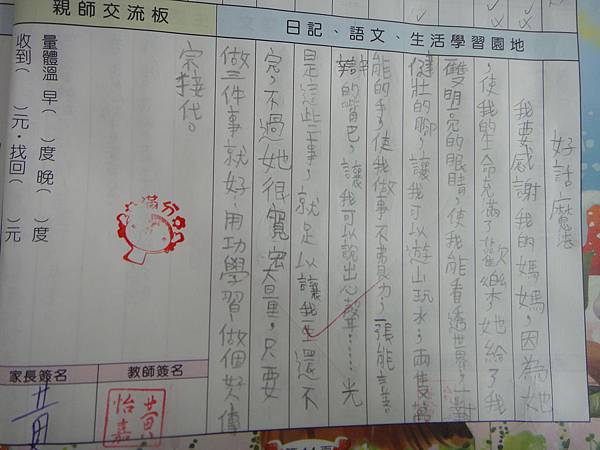 日記、語文、生活學習園地
好話魔
我要感謝我的媽媽,因為她
,使我的生命充滿了歡樂,她給了我
雙明亮的眼睛,使我能看透世界;一對
健壯的腳,讓我可以遊山玩水;兩隻萬
能的手,使我做事不費力;一張能言善
辯的嘴巴,讓我可以說出心聲……光
是這些事,就足以讓我一生還不
完,不過她很寬宏大量,只要
做三件事就好:用功學習、做個好、傳
宗接代。
親師交流板
滿分
量體溫 早( )度 晚( )度
收到( )元,找回( )元
教師簽名
黃怡嘉
家長簽名
黃